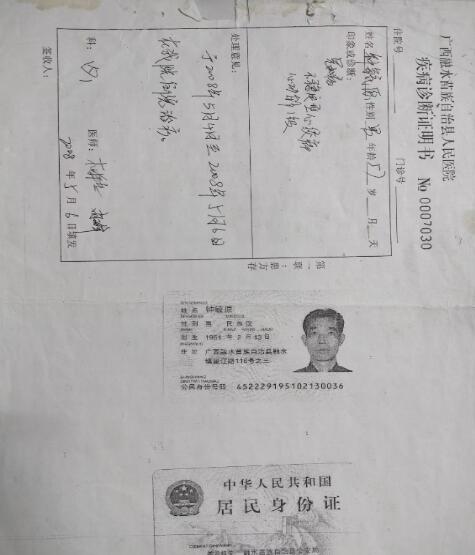 广西融水苗族自治县人民医院
疾病诊断证明书 No 0007030
住院号 门诊号
姓名 性别 男 年龄 57 岁 月 天
印象或诊断:
冠心病
不稳定型心绞痛
心功能 级
处理意见:
于2008年5月4日至2008年5月6日
在我院 院治疗。
科: 内 医师:
签收人: 2008年5月6日填发
第一联:患方存
姓名 钟毓源
性别 男 民族 汉
出生 1951年2月13日
住址 广西融水苗族自治县融水
镇 江路116号之三
公民身份号码 452229195102130036
中华人民共和国
居民身份证
签发机关 融水苗族自治县公安局